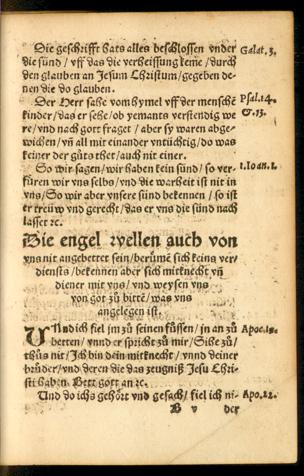 Die geschrifft hats alles beschlossen vnder Galat. 3.
die sünd / vff das die verheissung keme / durch
den glauben an Jesum Christum / gegeben de-
nen die do glauben.
Der Herr sahe vom hymel vff der menschē Psal. 14.
kinder / das er sehe / ob yemants verstendig we & .13.
re / vnd nach gott fraget / aber sy waren abge-
wichen / vñ all mit einander vntüchtig / do was
keiner der gůts thet / auch nit einer.
So wir sagen / wir haben kein sünd / so ver- 1. Ioan. 1.
füren wir vns selbs / vnd die warheit ist nit in
vns / So wir aber vnsere sünd bekennen / so ist
er treüw vnd gerecht / das er vns die sünd nach
lasset ꝛc.
Die engel wellen auch von
vns nit angebettet sein / berümē sich keins ver/
diensts / bekennen aber sich mitknecht vñ
diener mit vns / vnd weysen vns
von got zů bittē / was vns
angelegen ist.
Vnd ich fiel jm zů seinen füssen / jn an zů Apoc. 19.
betten / vnnd er spricht zů mir / Sihe zů /
thůs nit / Ich bin dein mitknecht / vnnd deiner
brüder / vnd deren die das zeugniß Jesu Chri-
sti haben. Bett gott an ꝛc.
Und do ichs gehört vnd gesach / fiel ich ni- Apo. 22.
B v der